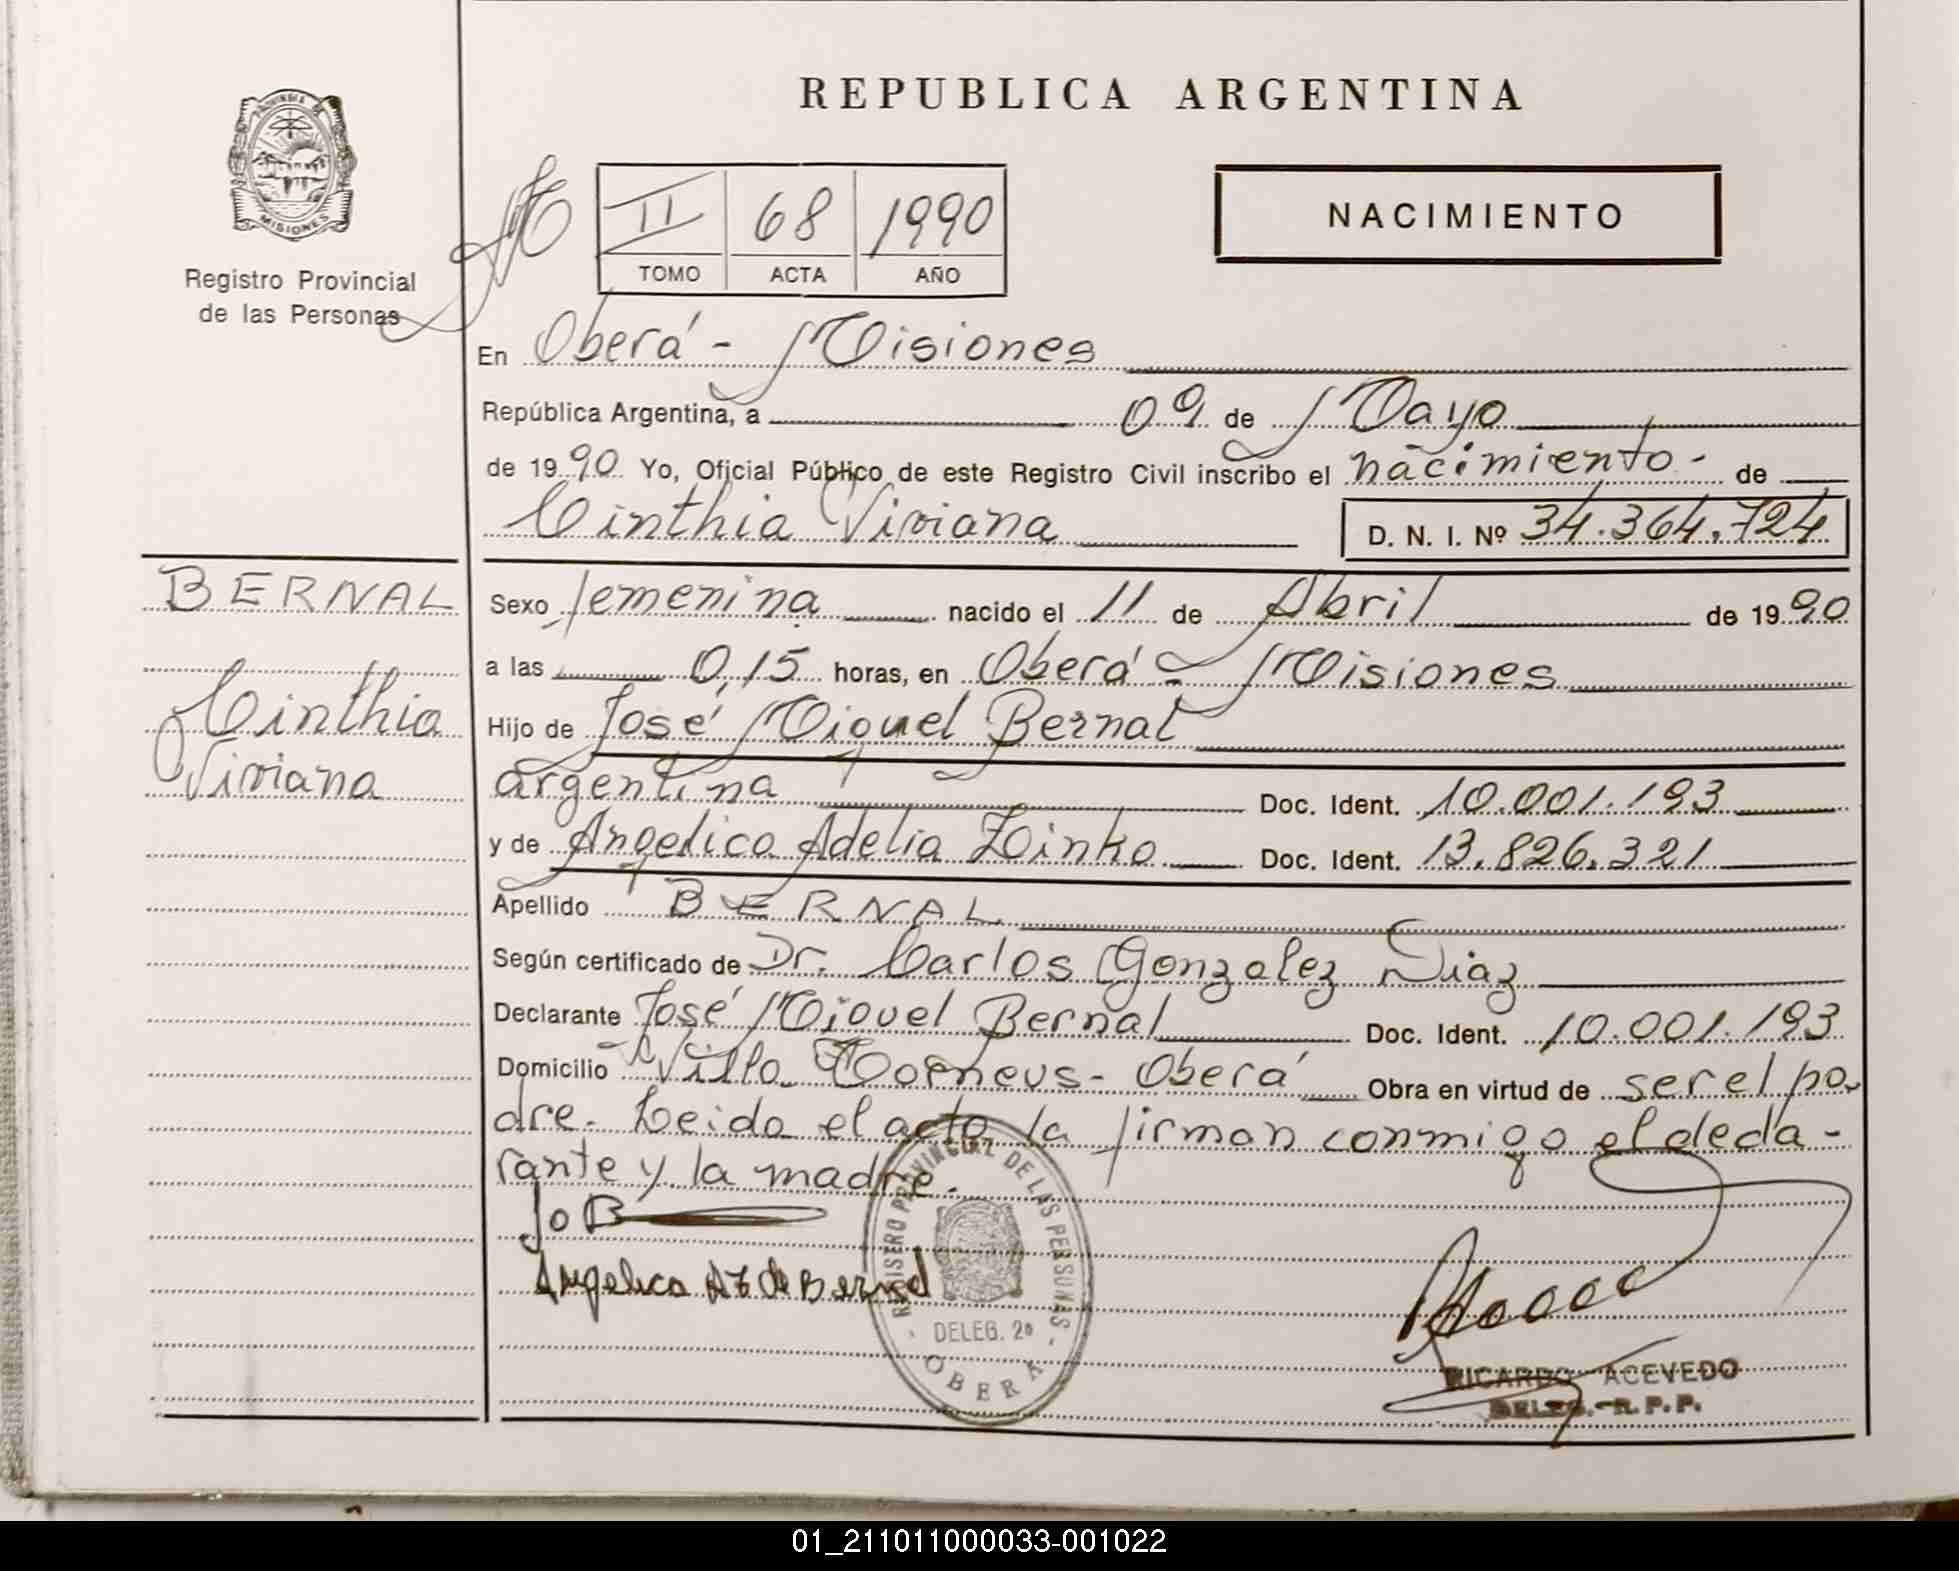 REPUBLICA ARGENTINA
PROVINCIA DE
MISIONES
Registro Provincial
de las Personas
II 68 1990
TOMO ACTA AÑO
NACIMIENTO
En Oberá - Misiones
República Argentina, a 09 de Mayo
de 1990 Yo, Oficial Público de este Registro Civil inscribo el nacimiento - de
Cinthia Viviana D. N. I. Nº 34.364.724
BERNAL
Cinthia
Viviana
Sexo femenina nacido el 11 de Abril de 1990
a las 0,15 horas, en Oberá - Misiones
Hijo de José Miguel Bernal
argentina Doc. Ident. 10.001.193
y de Angelica Adelia Zinko Doc. Ident. 13.826.321
Apellido BERNAL
Según certificado de Dr. Carlos Gonzalez Diaz
Declarante José Miguel Bernal Doc. Ident. 10.001.193
Domicilio Villa - Oberá Obra en virtud de ser el pa-
dre. Leida el acta la firman conmigo el decla-
rante y la madre.
Jo B
Angelica AZ de Bernal
REGISTRO PROVINCIAL DE LAS PERSONAS
DELEG. 2ª
- OBERA -
RICARDO ACEVEDO
DELEG. R. P. P.
01_211011000033-001022